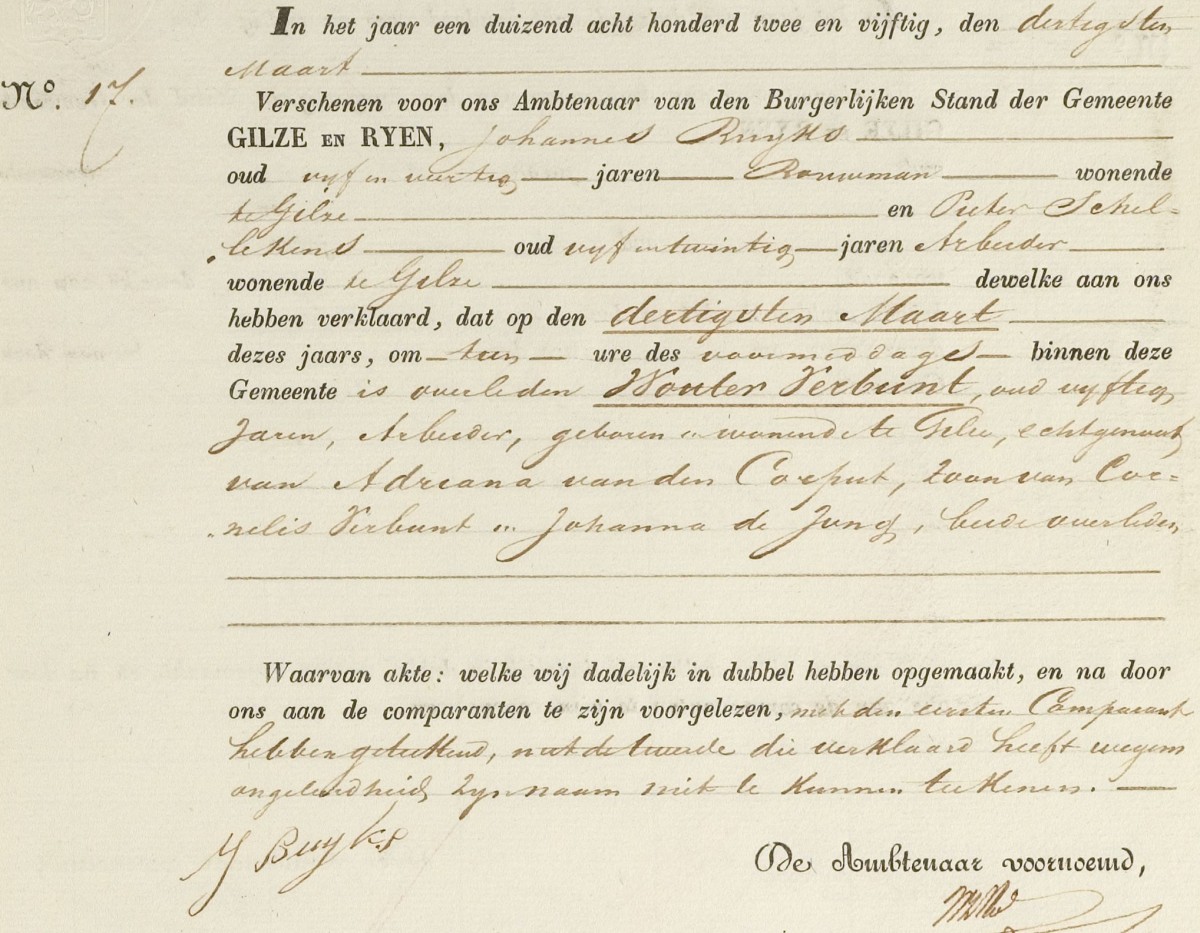 In het jaar een duizend acht honderd twee en vijftig, den dertigsten
Maart
No. 17.
Verschenen voor ons Ambtenaar van den Burgerlijken Stand der Gemeente
GILZE EN RYEN, Johannes Buyks
oud vyf en veertig jaren Bouwman wonende
te Gilze en Pieter Schel-
lekens oud vyf en twintig jaren Arbeider
wonende te Gilze dewelke aan ons
hebben verklaard, dat op den dertigsten Maart
dezes jaars, om tien ure des voormiddags binnen deze
Gemeente is overleden Wouter Verbunt, oud vyftig
Jaren, Arbeider, geboren en wonende te Gilze, echtgenoot
van Adreana van den Corput, zoon van Cor-
nelis Verbunt en Johanna de Jong, beide overleden
Waarvan akte: welke wij dadelijk in dubbel hebben opgemaakt, en na door
ons aan de comparanten te zijn voorgelezen, met den eersten Comparant
hebben geteekend, niet de tweede die verklaard heeft wegens
ongeleerdheid zyn naam niet te kunnen teekenen.
J Buyks
De Ambtenaar voornoemd,